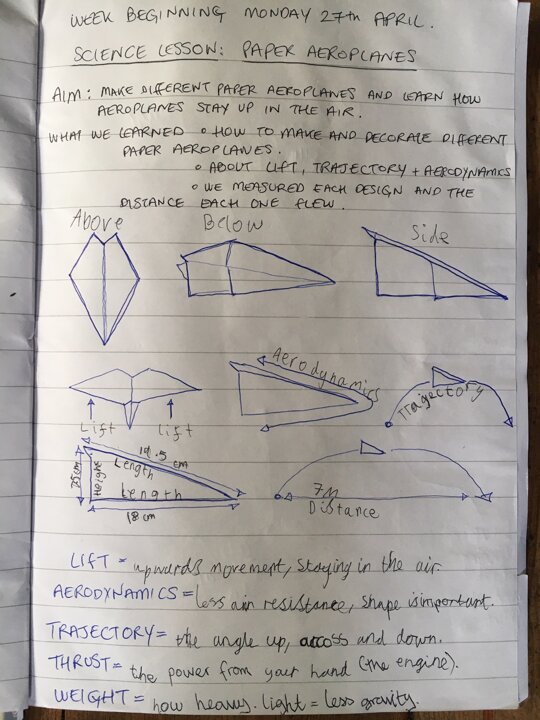 WEEK BEGINNING MONDAY 27TH APRIL.
SCIENCE LESSON: PAPER AEROPLANES
AIM: MAKE DIFFERENT PAPER AEROPLANES AND LEARN HOW
AEROPLANES STAY UP IN THE AIR.
WHAT WE LEARNED • HOW TO MAKE AND DECORATE DIFFERENT
PAPER AEROPLANES.
• ABOUT LIFT, TRAJECTORY + AERODYNAMICS
• WE MEASURED EACH DESIGN AND THE
DISTANCE EACH ONE FLEW.
Above Below Side
Aerodynamics
Trajectory
Lift Lift
19.5 cm
Length
Height
Length
18 cm
7M
Distance
LIFT = upwards movement, staying in the air.
AERODYNAMICS = less air resistance, shape is important.
TRAJECTORY = the angle up, across and down.
THRUST = the power from your hand (the engine).
WEIGHT = how heavy. light = less gravity.